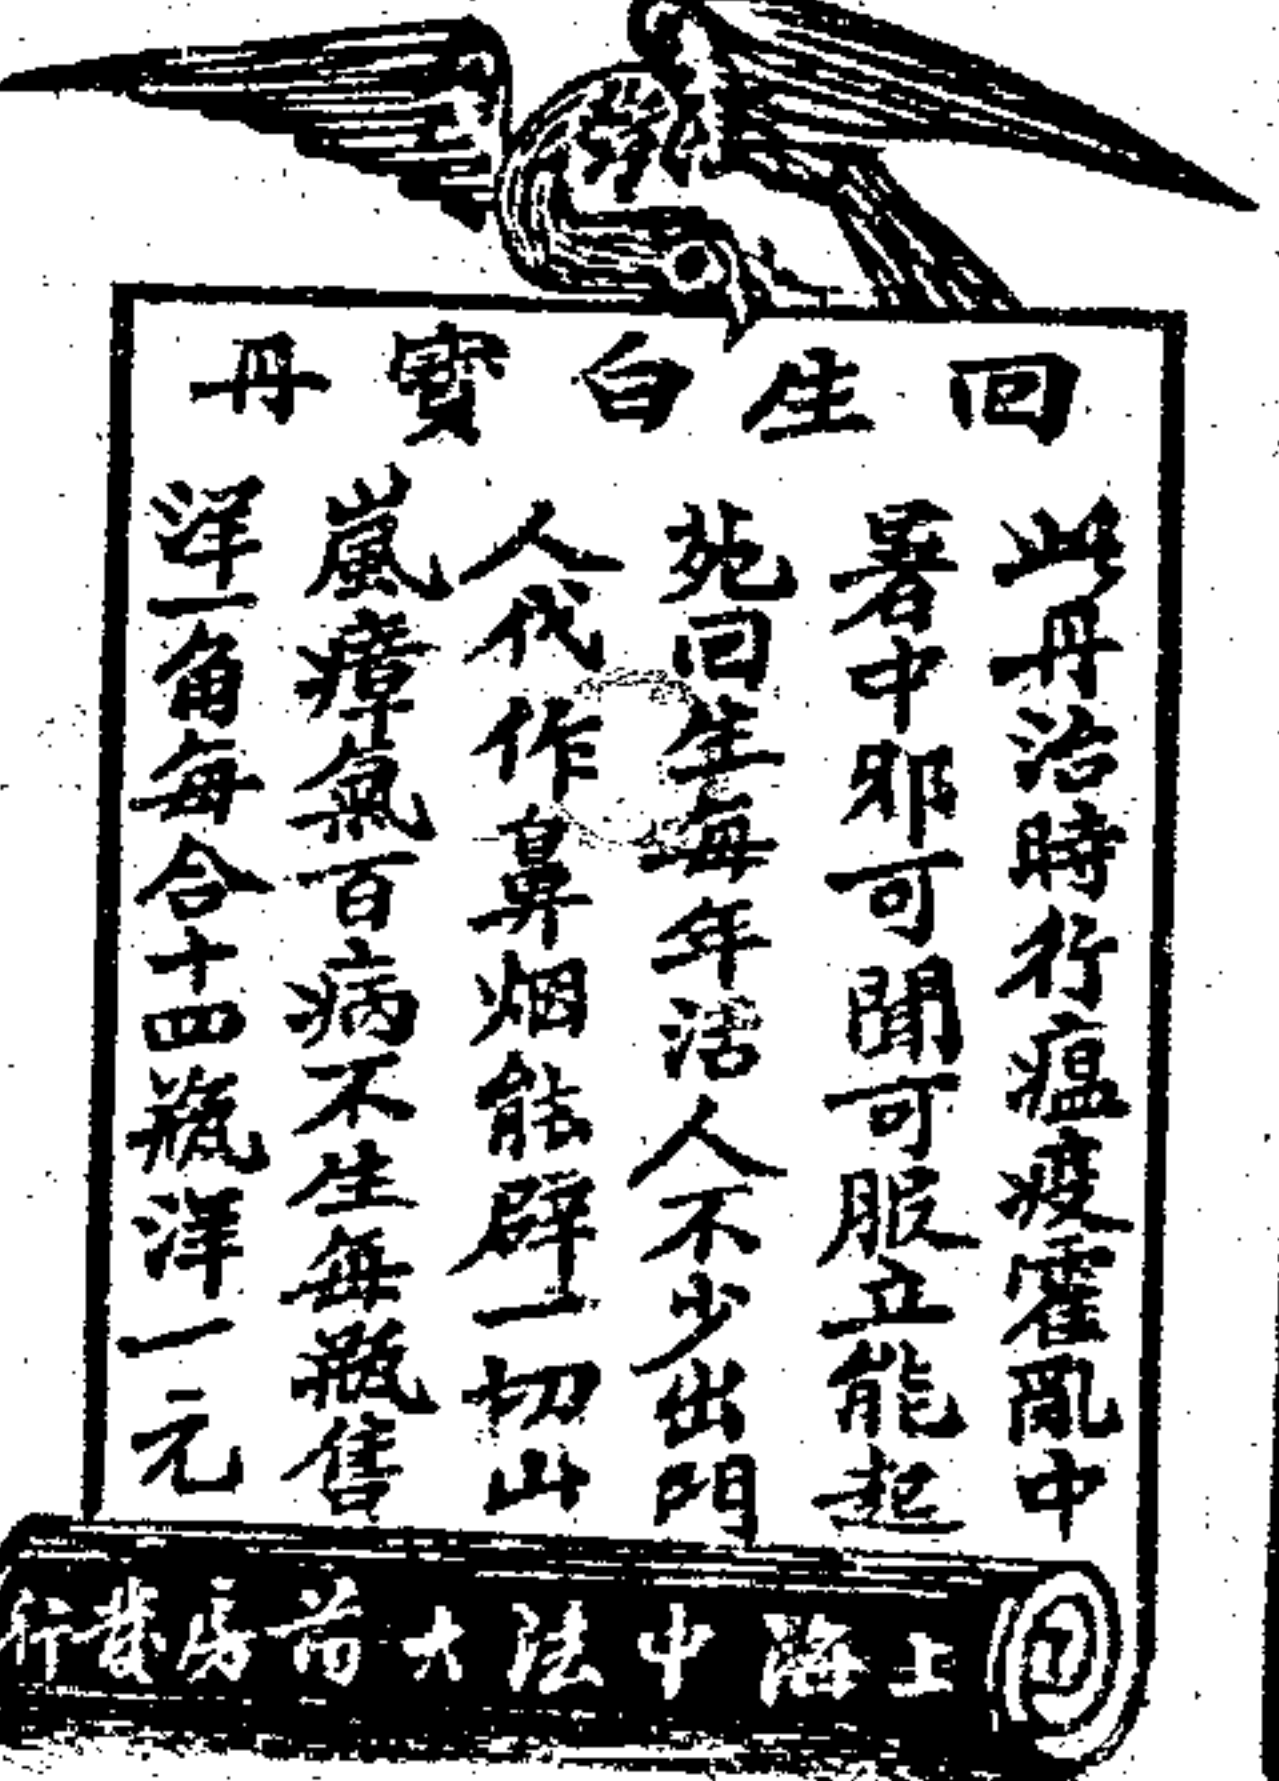 回生白寶丹
此丹治時行瘟疫霍亂中
暑中邪可聞可服立能起
死回生每年活人不少出門
人代作鼻烟能辟一切山
嵐瘴氣百病不生每瓶售
洋一角每合十四瓶洋一元
上海中法大葯房發行